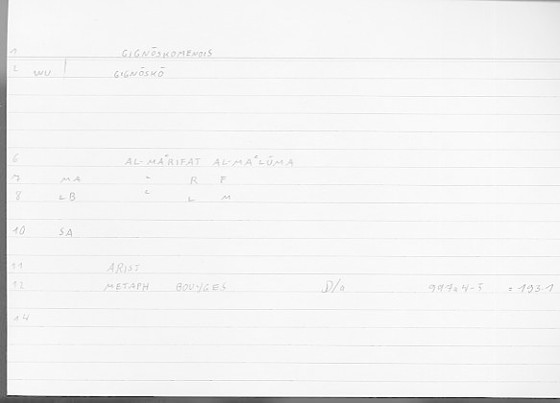 1 GIGNŌSKOMENOIS
2 WV | GIGNŌSKŌ
6 AL-MAʿRIFAT AL-MAʿLŪMA
7 MA ʿ R F
8 LB ʿ L M
10 SA
11 ARIST
12 METAPH BOUYGES B/a 997a4-5 = 193.1
14